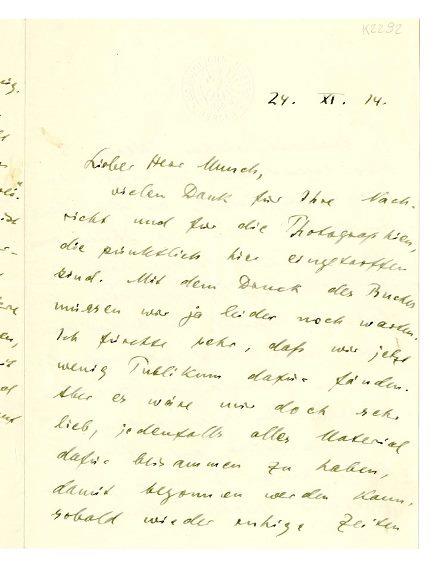 K2292
24. XI. 14.
Lieber Herr Munch,
vielen Dank für Ihre Nach-
richt und für die Photographien,
die pünktlich hier eingetroffen
sind. Mit dem Druck des Buches
müssen wir ja leider noch warten.
Ich fürchte sehr, daß wir jetzt
wenig Publikum dafür fänden.
Aber es wäre mir doch sehr
lieb, jedenfalls alles Material
dafür beisammen zu haben,
damit begonnen werden kann,
sobald wieder ruhige Zeiten